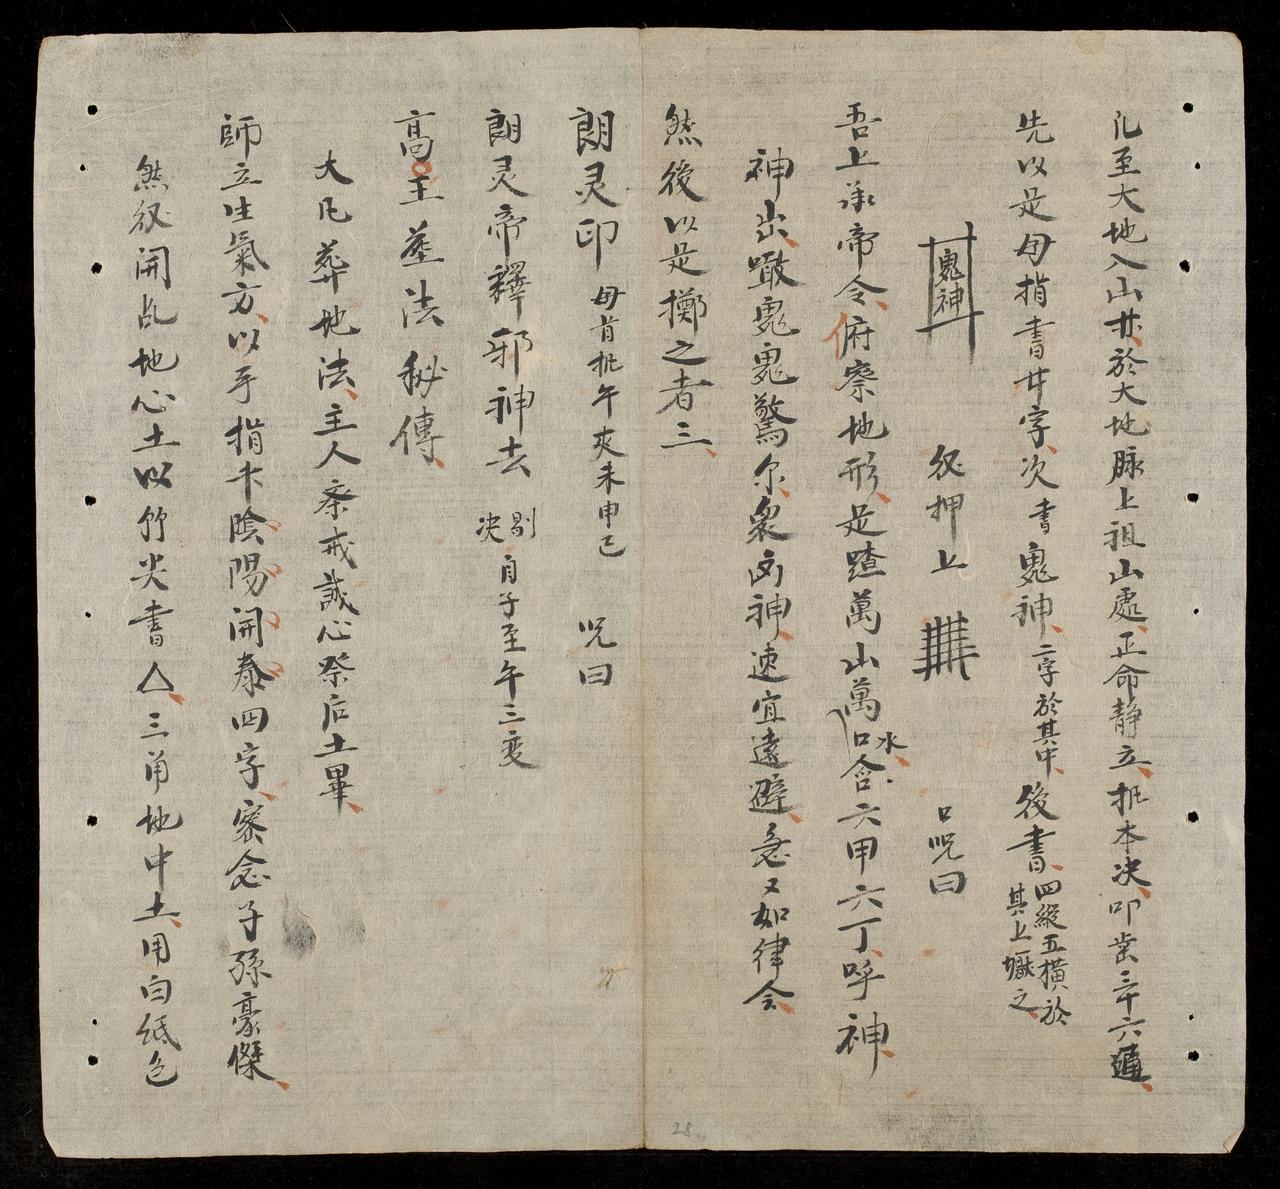 凢至大地入山林於大地脉上祖山處正命静立抓本决叩歯三十六遍
先以是母指書井字次書鬼神二字於其中後書四縱五横於其上厭之
鬼神 後押上 口呪曰
吾上承帝令俯察地形足蹅萬山萬水口含六甲六丁呼神
神出噉鬼鬼驚尔衆凶神速宜遠避急又如律令
然後以是擲之者三
朗灵印 母首抓午夾未申己 呪曰
朗灵帝釋邪神去 剔决自子至午三变
高王墓法秘傳
大凡葬地法主人斎戒誠心祭后土畢
師立生氣方以手指卡陰陽開泰四字密念子孫豪傑
然後開乱地心土以竹尖書△三角地中土用白紙包